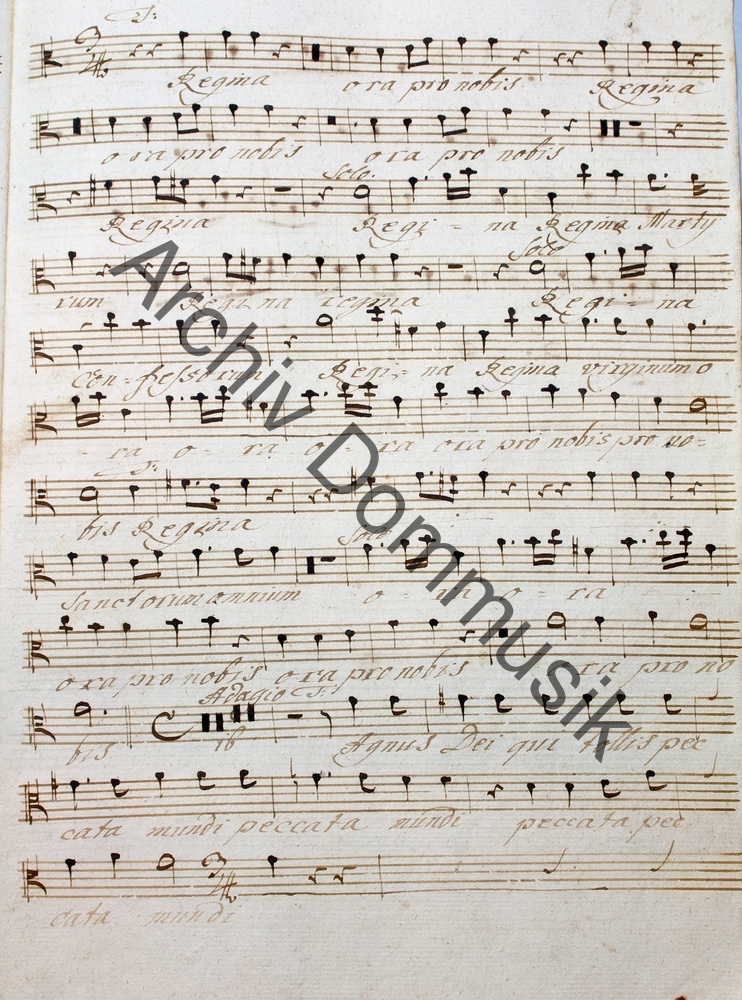 T:
Regina ora pro nobis Regina
ora pro nobis ora pro nobis
Solo.
Regina Regi - na Regina Marty
Solo
rum Regina regina Regi - na
Con - fessorum Regi - na Regina virginum o
- ra o - ra o - ra ora pro nobis pro no =
T:
bis Regina
Solo
Sanctorum omnium o - ra o - ra
ora pro nobis ora pro nobis ora pro no
Adagio T:
bis 16 Agnus Dei qui tollis pec
cata mundi peccata mundi peccata pec
cata mundi
Archiv Dommusik